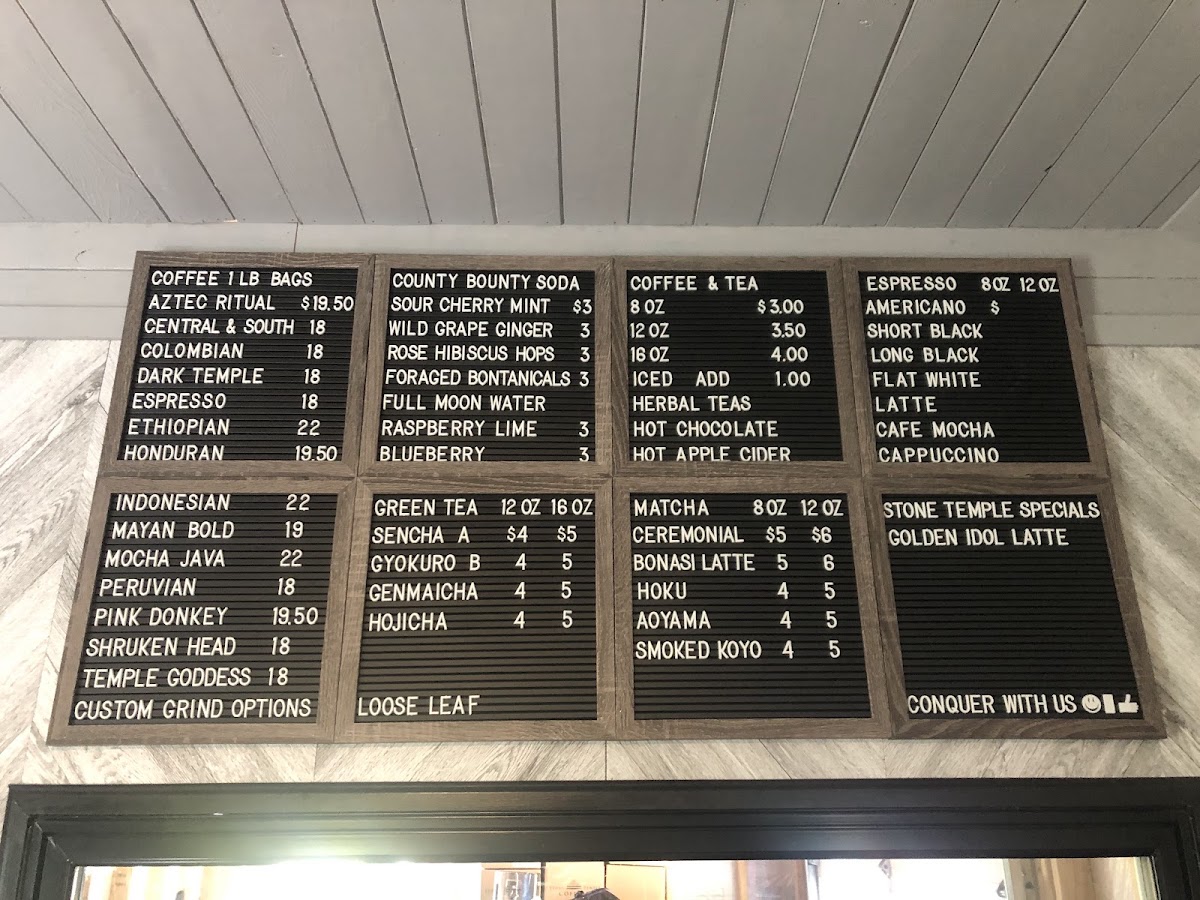 COFFEE 1 LB BAGS
AZTEC RITUAL $19.50
CENTRAL & SOUTH 18
COLOMBIAN 18
DARK TEMPLE 18
ESPRESSO 18
ETHIOPIAN 22
HONDURAN 19.50
COUNTY BOUNTY SODA
SOUR CHERRY MINT $3
WILD GRAPE GINGER 3
ROSE HIBISCUS HOPS 3
FORAGED BONTANICALS 3
FULL MOON WATER
RASPBERRY LIME 3
BLUEBERRY 3
COFFEE & TEA
8 OZ $3.00
12 OZ 3.50
16 OZ 4.00
ICED ADD 1.00
HERBAL TEAS
HOT CHOCOLATE
HOT APPLE CIDER
ESPRESSO 8 OZ 12 OZ
AMERICANO $
SHORT BLACK
LONG BLACK
FLAT WHITE
LATTE
CAFE MOCHA
CAPPUCCINO
INDONESIAN 22
MAYAN BOLD 19
MOCHA JAVA 22
PERUVIAN 18
PINK DONKEY 19.50
SHRUKEN HEAD 18
TEMPLE GODDESS 18
CUSTOM GRIND OPTIONS
GREEN TEA 12 OZ 16 OZ
SENCHA A $4 $5
GYOKURO B 4 5
GENMAICHA 4 5
HOJICHA 4 5
LOOSE LEAF
MATCHA 8 OZ 12 OZ
CEREMONIAL $5 $6
BONASI LATTE 5 6
HOKU 4 5
AOYAMA 4 5
SMOKED KOYO 4 5
STONE TEMPLE SPECIALS
GOLDEN IDOL LATTE
CONQUER WITH US